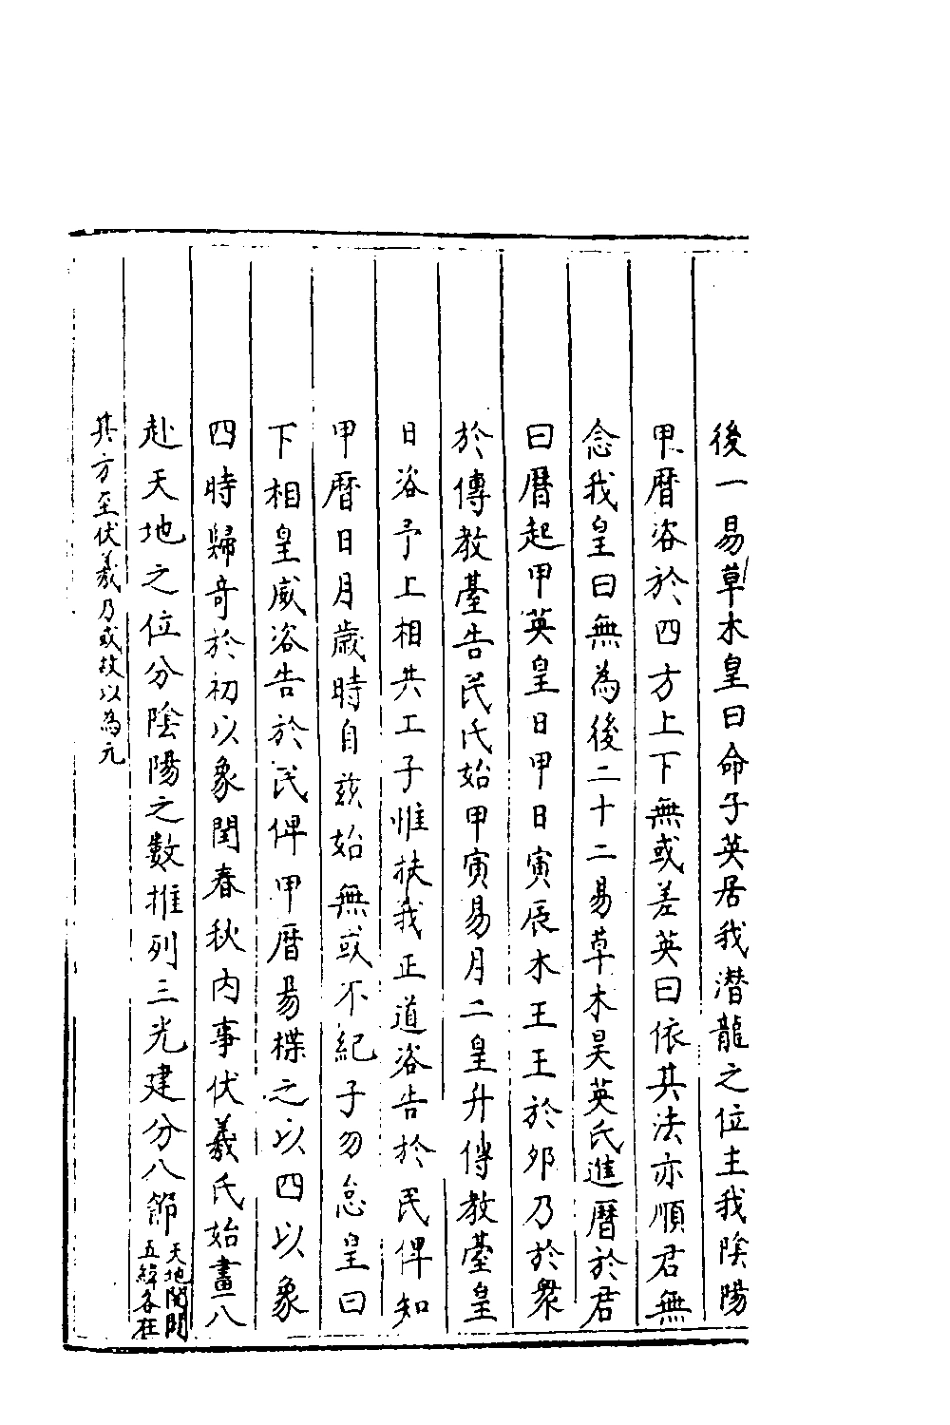 後一易草木皇曰命子英居我潛龍之位主我陰陽
甲曆咨於四方上下無或差英曰依其法亦順君無
念我皇曰無為後二十二易草木昊英氏進曆於君
曰曆起甲英皇日甲日寅辰木王王於卯乃於衆
於傳教臺告民氏始甲寅易月二皇升傳教臺皇
日浴予上相共工子惟扶我正道浴告於民俾知
甲曆日月歲時自茲始無或不紀子勿怠皇曰
下相皇威浴告於民俾甲曆易楪之以四以象
四時歸奇於初以象閏春秋內事伏羲氏始畫八
赴天地之位分陰陽之數推列三光建分八節天地開闢
五緯各在
其方至伏羲乃或故以為元